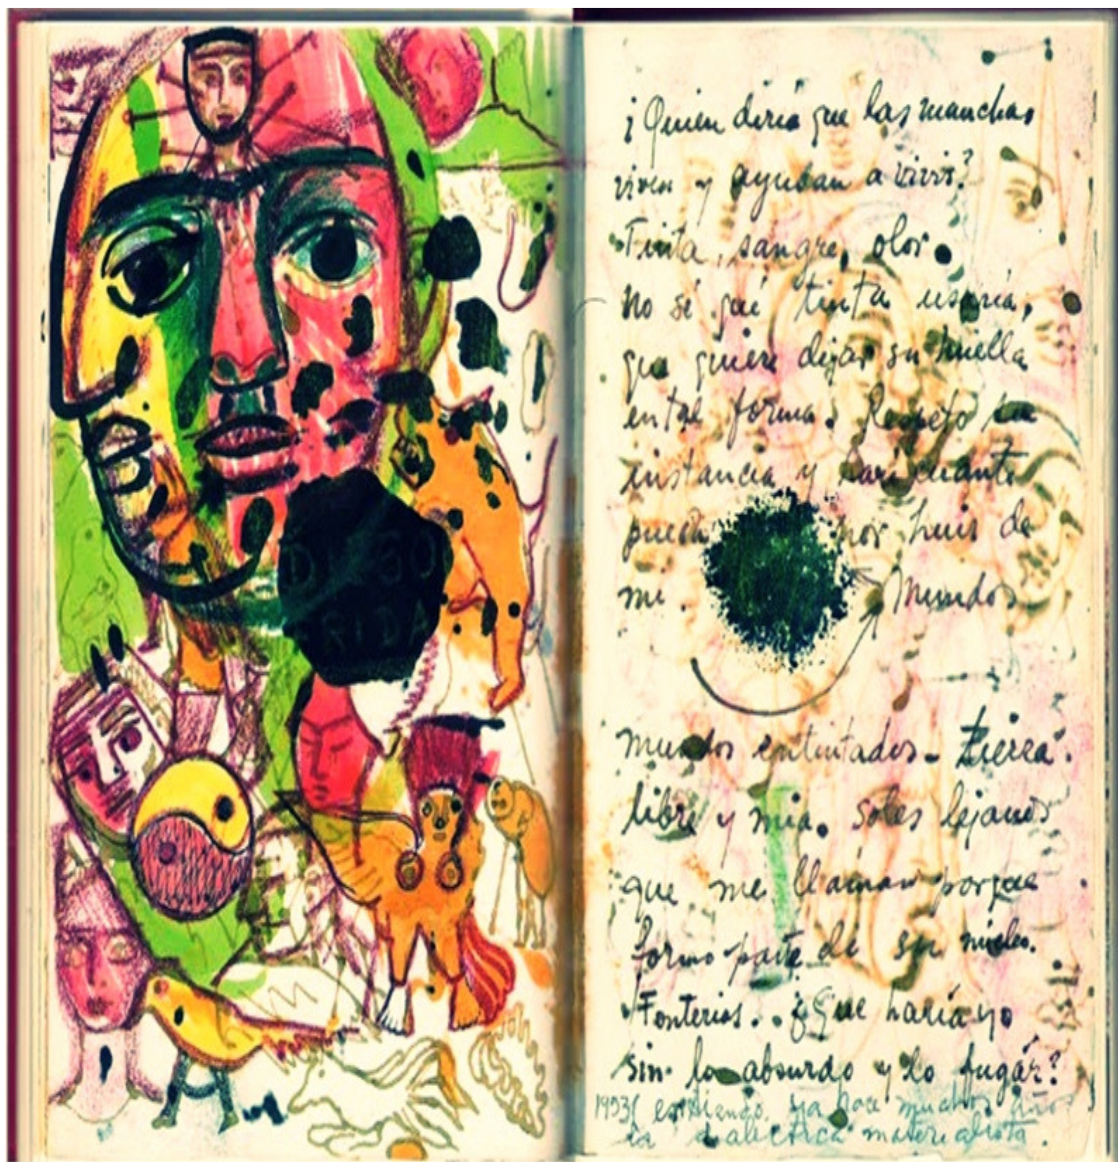 DIEGO
FRIDA
¿Quien diria que las manchas
viven y ayudan a vivir?
Tinta, sangre, olor.
No sé qué tinta usaría,
que quiere dejar su huella
en tal forma. Respeto su
instancia y haré cuanto
pueda por huir de
mi Mundos
mundos entintados - tierra
libre y mia. Soles lejanos
que me llaman porque
formo parte de su nucleo.
Tonterias. ¿Que haría yo
sin lo absurdo y lo fugáz?
1953( entiendo, ya hace muchos años
la dialectica materialista.